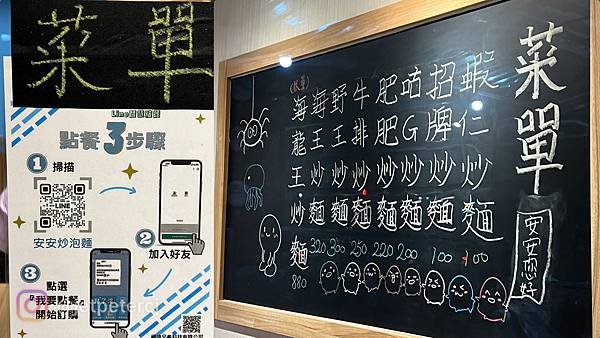 菜單
點餐3步驟
1 掃描
LINE
安安炒泡麵
2
加入好友
3 點選
『我要點餐』
開始訂購
菜單
安安您好
蝦仁炒麵 100
招牌炒麵 100
咕G炒麵 200
肥肥炒麵 220
牛排炒麵 250
野王炒麵 300
海王炒麵 320
海龍王炒麵 880